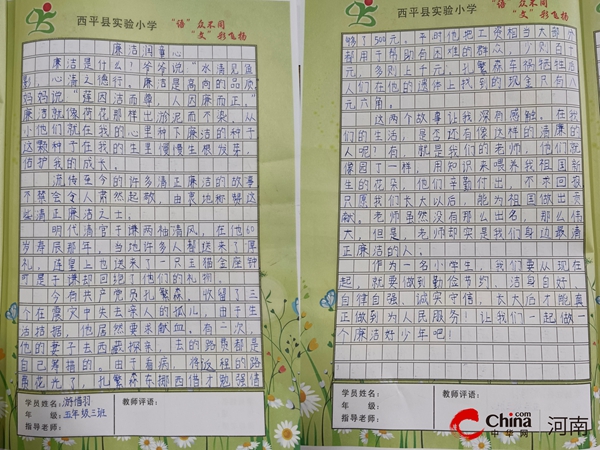 西平县实验小学
"语"众不同
"文"彩飞扬
廉洁润童心
廉洁是什么？爷爷说"水清见鱼
影，心清之德行。廉洁是高尚的品质，
妈妈说"莲因洁而尊，人因廉而正。"
廉洁就像荷花那样出淤泥而不染，从
小他们就在我的心里种下廉洁的种子
这颗种子在我的生里慢慢生根发芽，
佑护我的成长。
流传至今的许多清正廉洁的故事
不禁会令人肃然起敬，由衷地称赞这
些清正廉洁之士。
明代清官于谦两袖清风，在他60
岁寿辰那年，当地许多人都送来了厚
礼，连皇上也送来了一只玉猫金座钟
可是于谦却回绝了他们的礼物。
今有共产党员孔繁森，收留了三
个在震灾中失去亲人的孤儿，由于生
活拮据，他居然要求献血。有一次，
他的妻子去西藏探亲，去的路费都是
自己筹措的。由于看病，待返程的路
费花光了，孔繁森东挪西借才勉强借
学员姓名：游惜羽
年 级：五年级三班
指导老师：
教师评语：
西平县实验小学
"语"众不同
"文"彩飞扬
够了500元。平时他把工资相当大部分
都用于帮助有困难的群众，少则百十
元，多则上千元，孔繁森车祸牺牲后
人们在他的遗体上找到的现金只有八
元六角。
这两个故事让我深有感触。在我
们的生活，是否还有像这样的清廉的
人呢？有，就是我们的老师，他们就
像园丁一样，用知识来喂养我祖国新
生的花朵，他们辛勤付出，不求回报
只愿我们长大以后，能为祖国做出贡
献。老师虽然没有那么出名，那么伟
大，但是，老师却实是我们身边最清
正廉洁的人。
作为一名小学生，我们要从现在
起，就要做到勤俭节约、洁身自好、
自律自强、诚实守信，长大后才能真
正做到为人民服务！让我们一起做一
个廉洁好少年吧！
学员姓名：
年 级：
指导老师：
教师评语：
China.com
中华网
河南